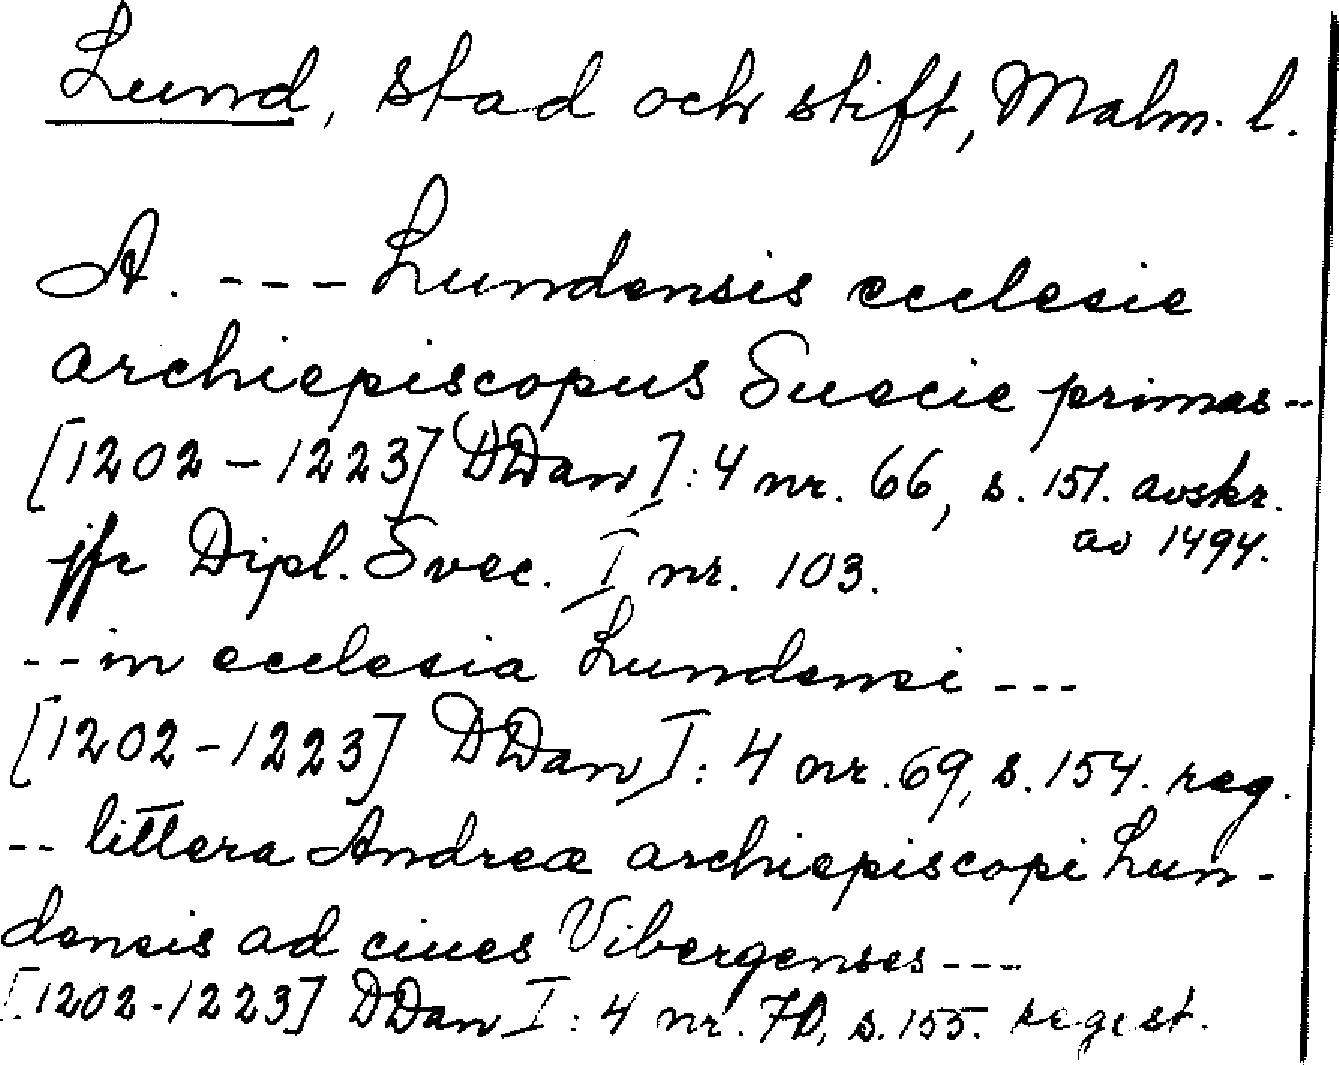 Lund, stad och stift, Malm. l.
A. --- Lundensis ecclesie
archiepiscopus Suecie primas --
[1202 - 1223] DDan I: 4 nr. 66, s. 151. avskr.
av 1494.
jfr Dipl. Svec. I nr. 103.
-- in ecclesia Lundensi ---
[1202 - 1223] DDan I: 4 nr. 69, s. 154. reg.
-- littera Andree archiepiscopi Lun-
densis ad ciues Vibergenses ---
[1202 - 1223] DDan I: 4 nr. 70, s. 155. regest.